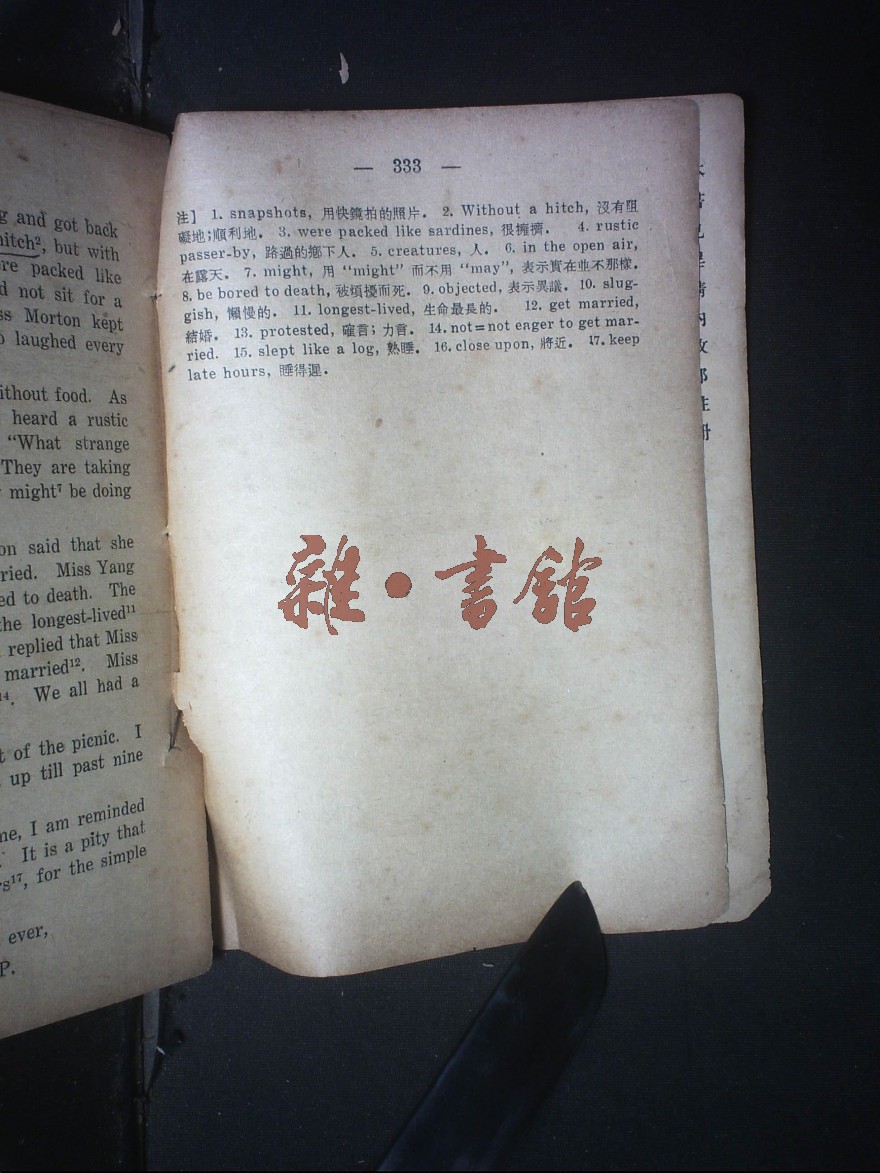 g and got back
hitch², but with
re packed like
d not sit for a
ss Morton kept
o laughed every
ithout food. As
heard a rustic
"What strange
They are taking
might⁷ be doing
on said that she
ried. Miss Yang
ed to death. The
the longest-lived¹¹
replied that Miss
married¹². Miss
¹⁴. We all had a
t of the picnic. I
up till past nine
me, I am reminded
It is a pity that
rs¹⁷, for the simple
ever,
P.
— 333 —
注〕 1. snapshots, 用快鏡拍的照片. 2. Without a hitch, 沒有阻
礙地;順利地. 3. were packed like sardines, 很擁擠. 4. rustic
passer-by, 路過的鄉下人. 5. creatures, 人. 6. in the open air,
在露天. 7. might, 用 "might" 而不用 "may", 表示實在並不那樣.
8. be bored to death, 被煩擾而死. 9. objected, 表示異議. 10. slug-
gish, 懶慢的. 11. longest-lived, 生命最長的. 12. get married,
結婚. 13. protested, 確言; 力言. 14. not=not eager to get mar-
ried. 15. slept like a log, 熟睡. 16. close upon, 將近. 17. keep
late hours, 睡得遲.
雜·書館